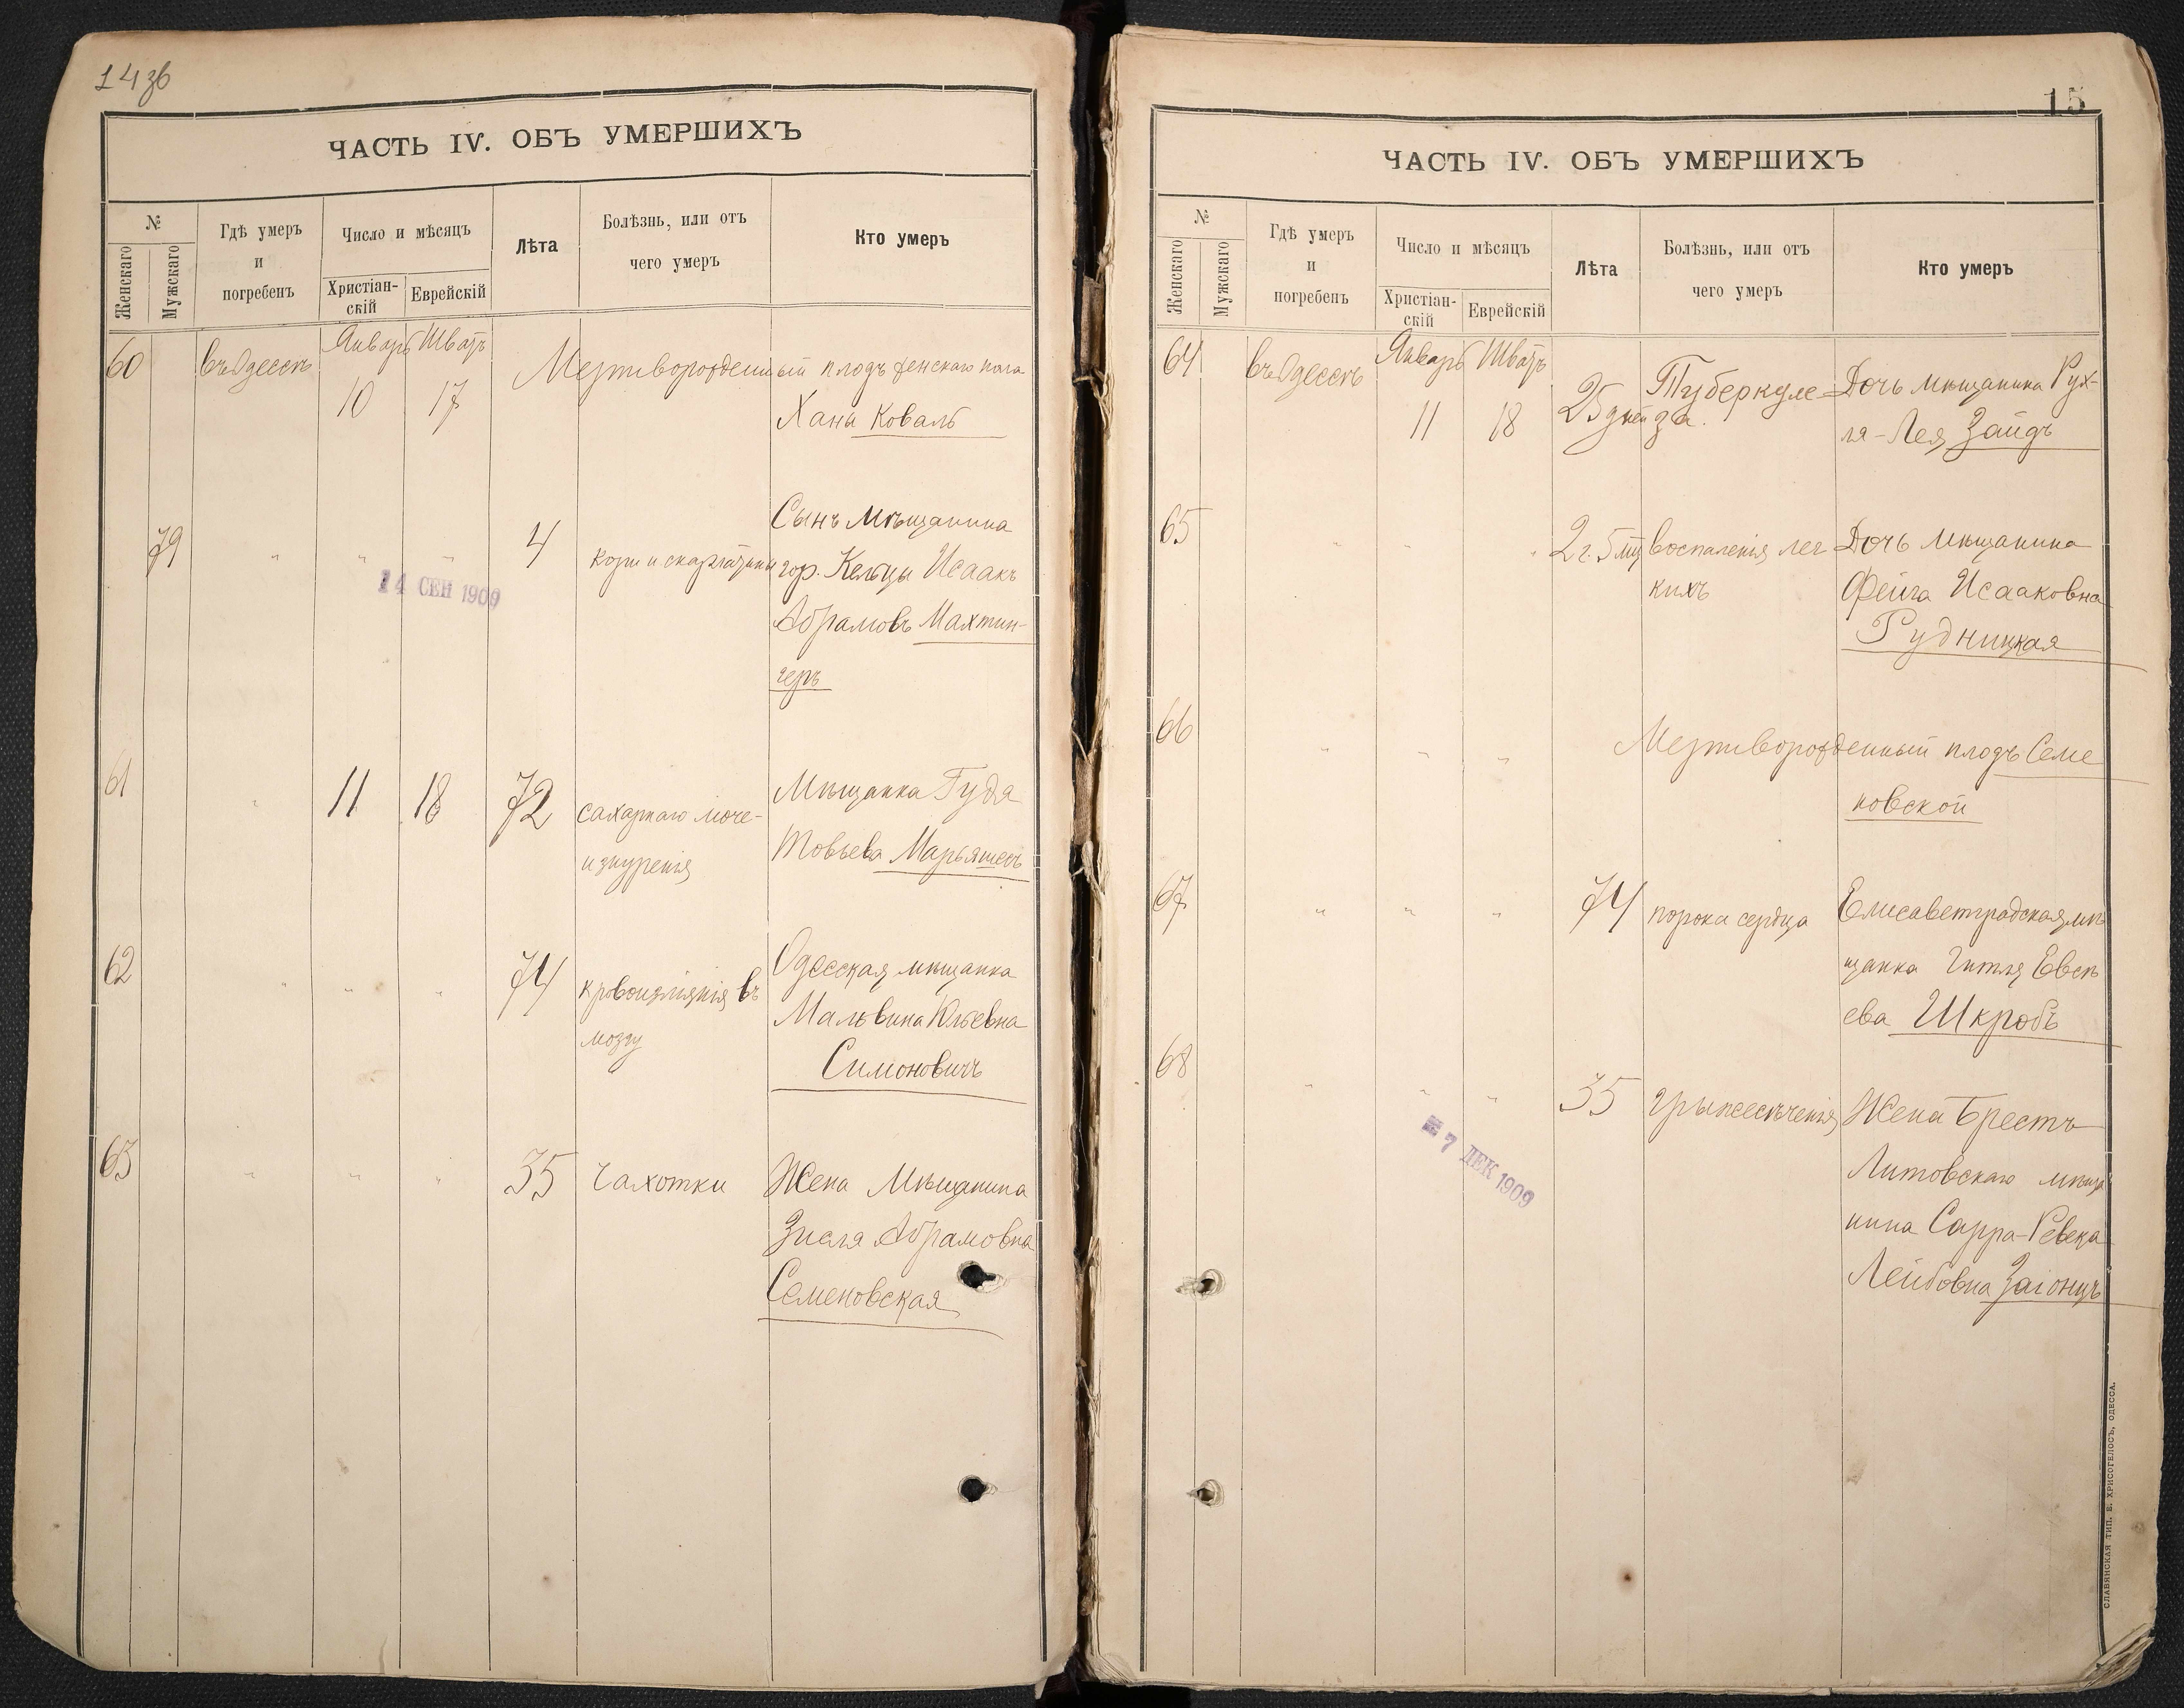 14 зв
ЧАСТЬ IV. ОБЪ УМЕРШИХЪ
№
Женскаго
Мужскаго
Гдѣ умеръ
и
погребенъ
Число и мѣсяцъ
Христіан-
скій
Еврейскій
Лѣта
Болѣзнь, или отъ
чего умеръ
Кто умеръ
60 въ Одессѣ Январь Шватъ Мертворожденный плодъ женскаго пола
10 17 Ханы Коваль
79 " " " 4 кори и скарлатины Сынъ Мѣщанина
гор. Кельцы Исаакъ
Абрамовъ Махтин-
геръ
14 СЕН 1909
61 " 11 18 72 сахарнаго моче-
изнуренія
Мѣщанка Гудя
Товьева Марьяшесъ
62 " " " 74 кровоизліянія въ
мозгу
Одесская мѣщанка
Мальвина Юльевна
Симоновичъ
63 " " " 35 Чахотки Жена Мѣщанина
Зисля Абрамовна
Семеновская
15
ЧАСТЬ IV. ОБЪ УМЕРШИХЪ
№
Женскаго
Мужскаго
Гдѣ умеръ
и
погребенъ
Число и мѣсяцъ
Христіан-
скій
Еврейскій
Лѣта
Болѣзнь, или отъ
чего умеръ
Кто умеръ
64 въ Одессѣ Январь Шватъ
11 18 25 дней Туберкуле-
за.
Дочь мѣщанина Рух-
ля-Лея Зайдъ
65 " " " 2 г. 5 мц воспаленія лег
кихъ
Дочь мѣщанина
Фейга Исааковна
Рудницкая
66 " " " Мертворожденный плодъ Семе
новской
67 " " " 74 порока сердца Елисаветградская мѣ
щанка Гитля Евсѣ
ева Шкробъ
68 " " " 35 грыжесѣченія Жена Брестъ
Литовскаго мѣща
нина Сарра-Ревека
Лейбовна Заіонцъ
7 ДЕК 1909
СЛАВЯНСКАЯ ТИП. Е. ХРИСОГЕЛОСЪ, ОДЕССА.